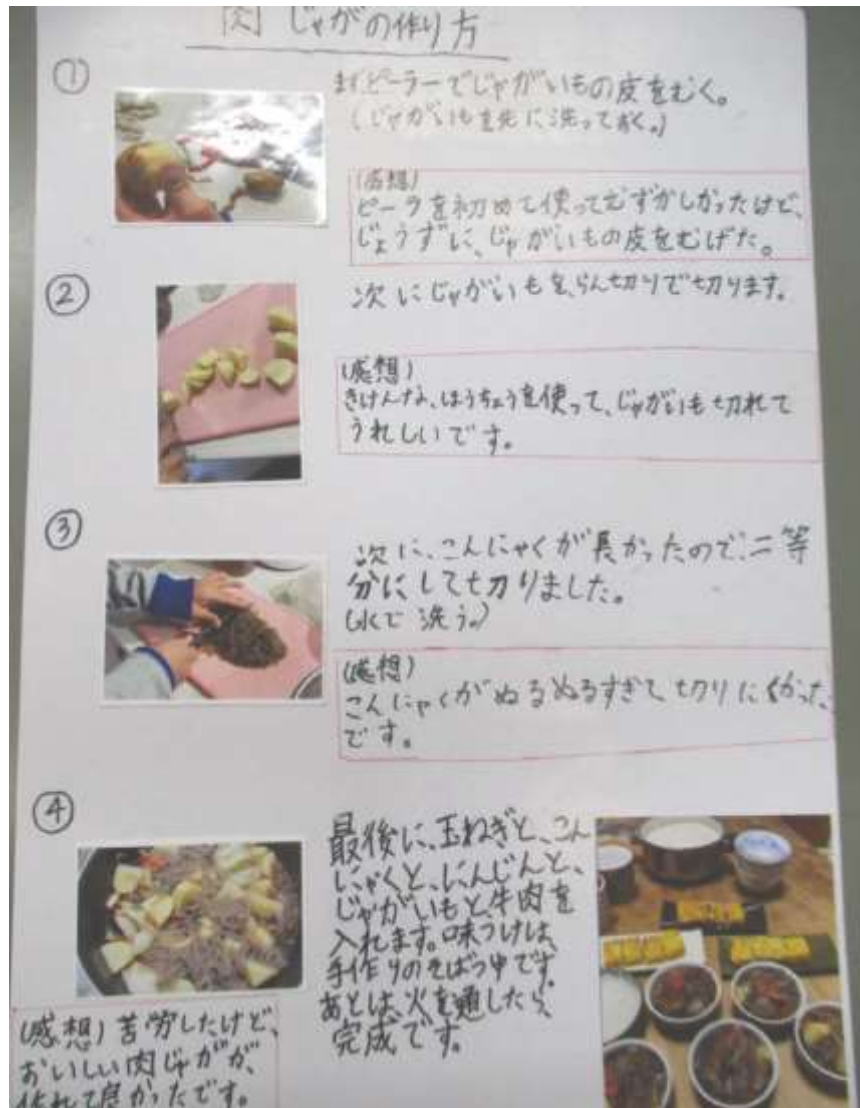 肉じゃがの作り方
①
まずピーラーでじゃがいもの皮をむく。
(じゃがいもを先に洗っておく。)
(感想)
ピーラを初めて使ってむずかしかったけど、
じょうずに、じゃがいもの皮をむげた。
②
次にじゃがいもを、らん切りで切ります。
(感想)
きけんな、ほうちょうを使って、じゃがいも切れて
うれしいです。
③
次に、こんにゃくが長かったので、二等
分にして切りました。
(水で洗う。)
(感想)
こんにゃくがぬるぬるすぎて切りにくかった
です。
④
最後に、玉ねぎと、こん
にゃくと、にんじんと、
じゃがいもと、牛肉を
入れます。味つけは、
手作りのそばつゆです。
あとは、火を通したら、
完成です。
(感想)苦労したけど、
おいしい肉じゃがが、
作れて良かったです。